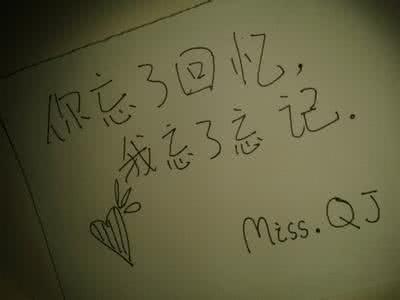 你忘了回忆,
我忘了忘记.
Miss. QJ